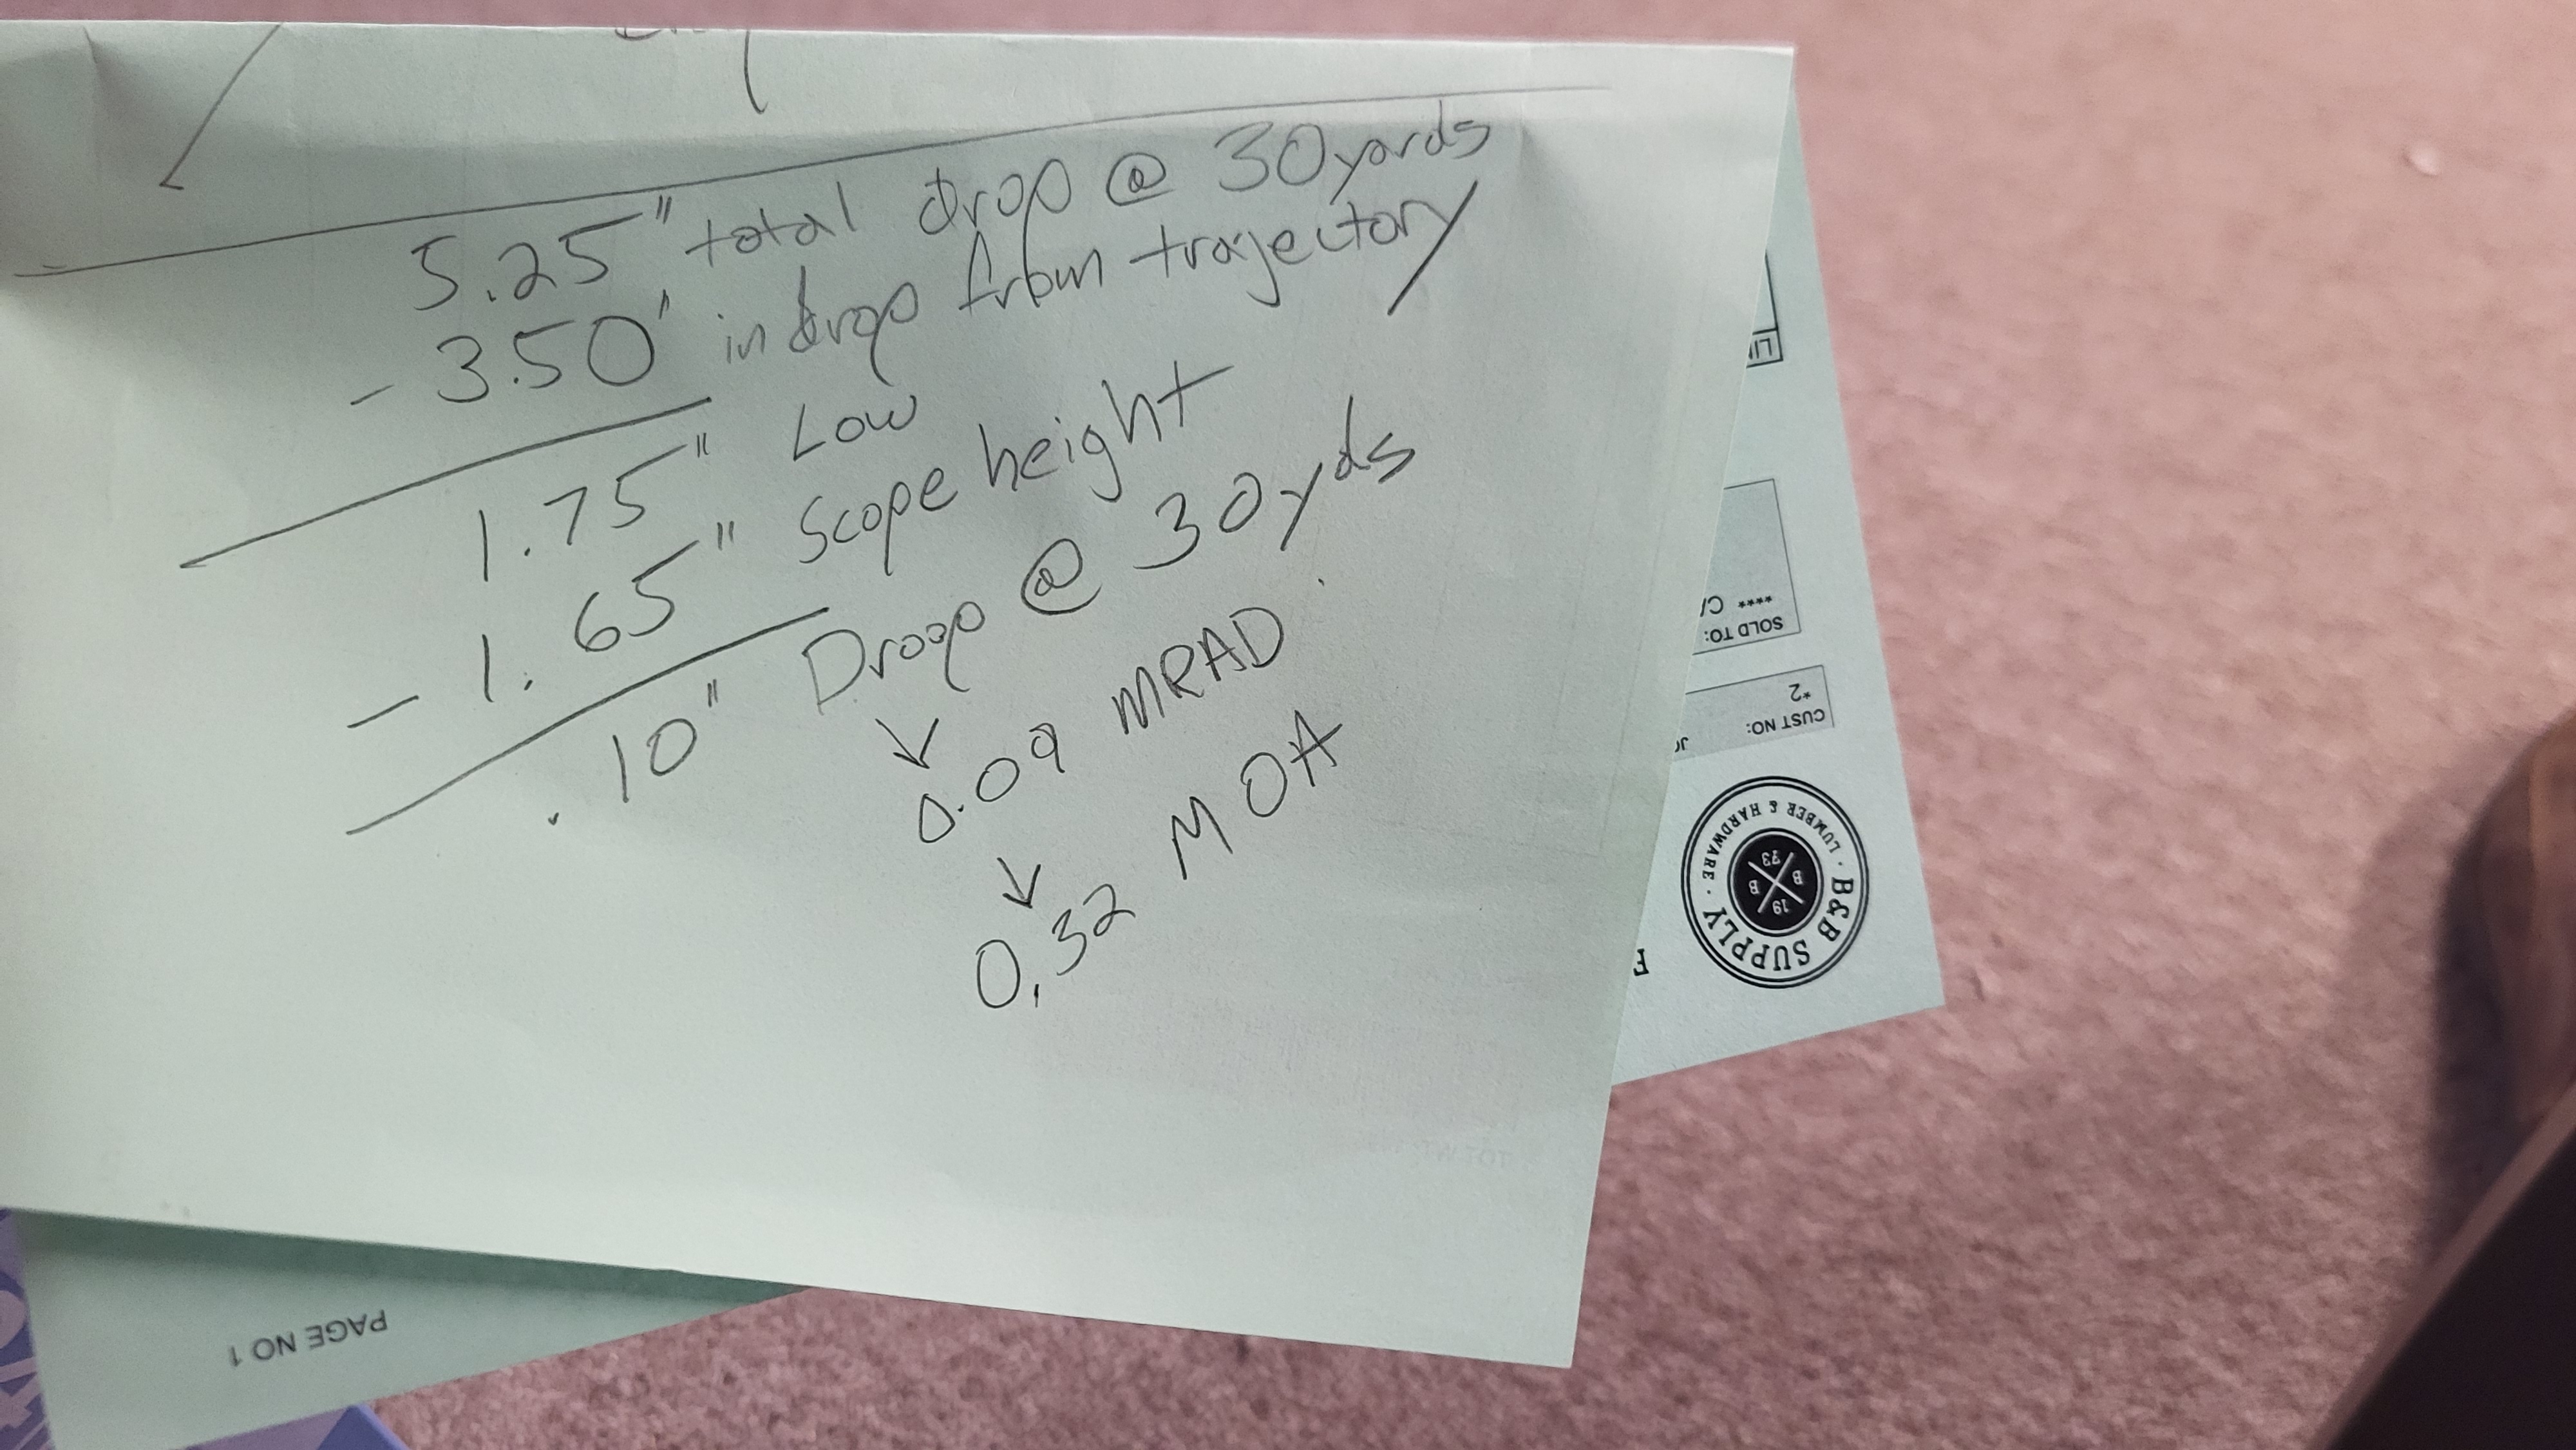 5.25" total drop @ 30yards
- 3.50" in drop from trajectory
1.75" Low
- 1.65" Scope height
.10" Droop @ 30yds
0.09 MRAD
0.32 MOA
SOLD TO:
****
CUST NO:
*2
B&B SUPPLY
· LUMBER & HARDWARE ·
19 B B 73
PAGE NO 1